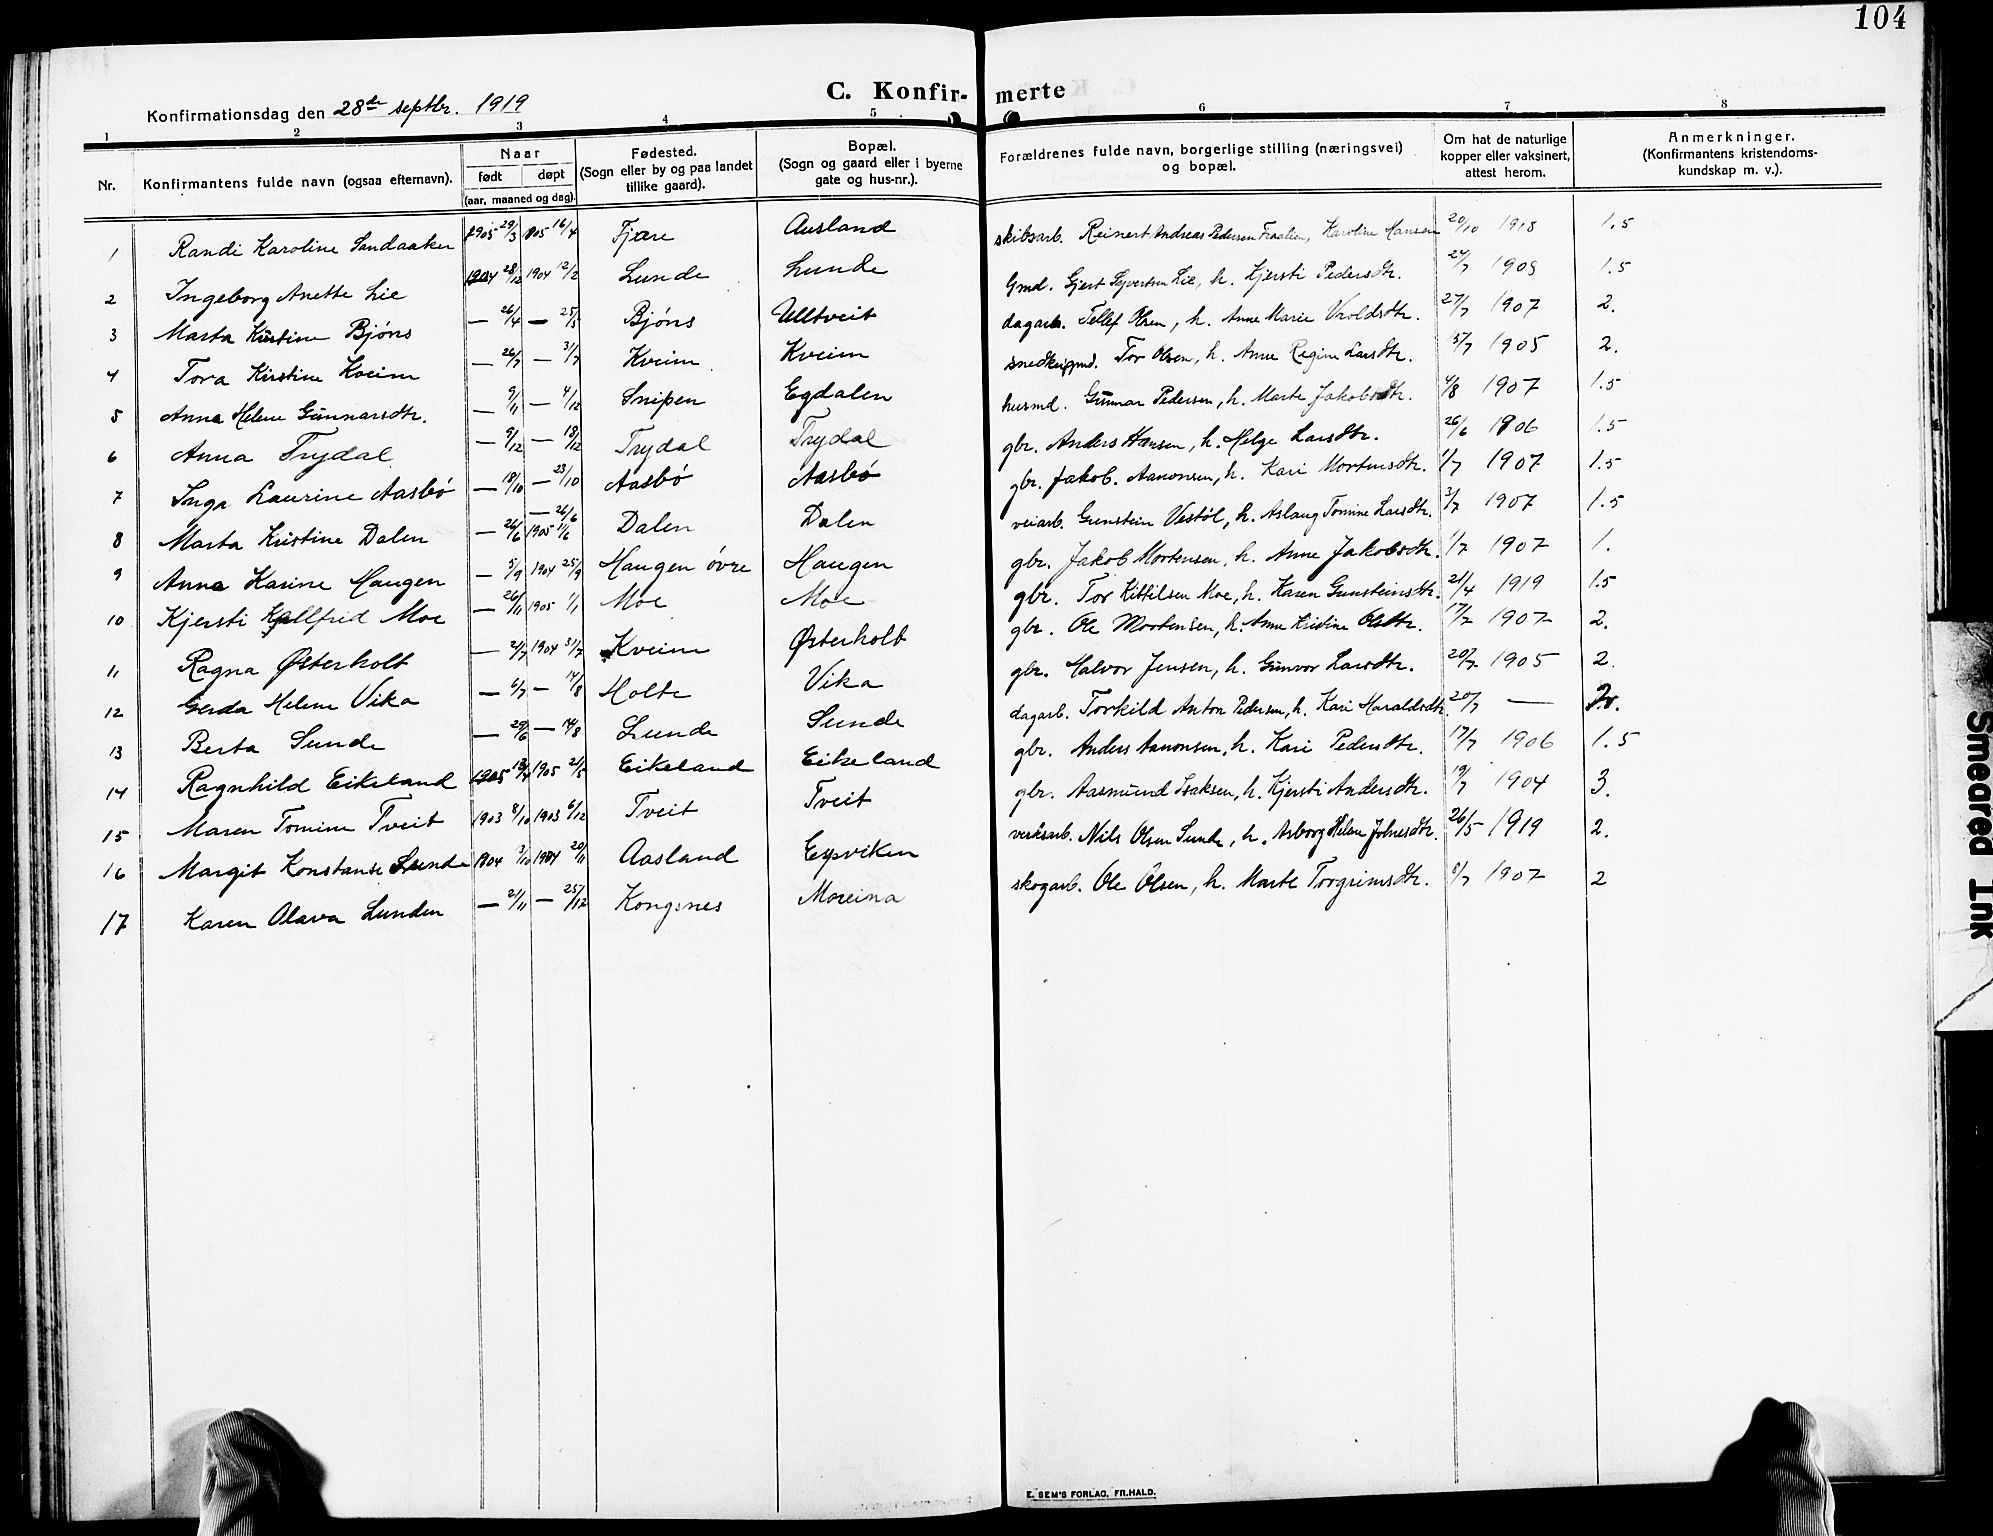 104
C. Konfirmerte
Konfirmationsdag den 28de septbr. 1919
1 2 3 4 5 6 7 8
Nr. Konfirmantens fulde navn (ogsaa efternavn). Naar født døpt (aar, maaned og dag). Fødested. (Sogn eller by og paa landet tillike gaard). Bopæl. (Sogn og gaard eller i byerne gate og hus-nr.). Forældrenes fulde navn, borgerlige stilling (næringsvei) og bopæl. Om hat de naturlige kopper eller vaksinert, attest herom. Anmerkninger. (Konfirmantens kristendomskundskap m. v.).
1 Randi Karoline Sandaaker 1905 29/3 1905 16/4 Fjære Ausland skibsarb. Reinert Andreas Pedersen, Karoline Hansen 20/10 1918 1.5
2 Ingeborg Anette Lie 1904 28/12 1904 12/2 Lunde Lunde gmd. Gjert Syvertsen Lie, h. Kjersti Pedersdtr. 24/7 1908 1.5
3 Marta Kirstine Bjóns — 26/4 — 25/5 Bjóns Ulltveit dagarb. Tellef Olsen, h. Anne Marie Vroldsdtr. 27/7 1907 2.
4 Tora Kirstine Kveim — 26/7 — 31/7 Kveim Kveim snedker, gmd. Tor Olsen, h. Anne Regine Larsdtr. 15/7 1905 2.
5 Anna Helene Gunnarsdtr. — 9/11 — 4/12 Snipen Egdalen husmd. Gunnar Pedersen, h. Marte Jakobsdtr. 4/8 1907 1.5
6 Anna Trydal — 9/12 — 18/12 Trydal Trydal gbr. Anders Hansen, h. Helge Larsdtr. 26/6 1906 1.5
7 Inga Laurine Aasbó — 18/10 — 23/10 Aasbó Aasbó gbr. Jakob Aanonsen, h. Kari Mortensdtr. 1/7 1907 1.5
8 Marta Kristine Dalen — 26/6 — 26/6 1905 11/6 Dalen Dalen veiarb. Gunstein Vestól, h. Aslaug Tomine Larsdtr. 3/7 1907 1.5
9 Anna Karine Haugen — 5/9 1904 25/9 Haugen óvre Haugen gbr. Jakob Mortensen, h. Anne Jakobsdtr. 1/7 1907 1.
10 Kjersti Hallfrid Moe — 26/11 1905 1/1 Moe Moe gbr. Tor Kittilsen Moe, h. Karen Gunsteinsdtr. 21/4 1919 1.5
11 Ragna Østerholt — 2/7 1904 31/7 Kveim Østerholt gbr. Ole Mortensen, h. Anne Kristine Olsdtr. 17/7 1907 2.
12 Gerda Helene Vika — 6/7 — 14/8 Holte Vika gbr. Halvor Jensen, h. Gunvor Larsdtr. 20/7 1905 2.
13 Berta Sunde — 29/6 — 14/8 Lunde Sunde dagarb. Torkild Anton Pedersen, h. Kari Haraldsdtr. 20/7 —
14 Ragnhild Eikeland 1905 18/4 1905 21/5 Eikeland Eikeland gbr. Anders Aanonsen, h. Kari Pedersdtr. 17/7 1906 1.5
15 Maren Tomine Tveit 1903 8/10 1903 6/12 Tveit Tveit gbr. Aasmund Isaksen, h. Kjersti Andersdtr. 19/7 1904 3.
16 Margit Konstanse Sunde 1904 3/10 1904 20/11 Aasland Espviken verksarb. Nils Olsen Sunde, h. Asborg Helene Johnesdtr. 26/5 1919 2.
17 Karen Olava Lunden — 2/11 — 25/12 Kongsnes Moreina skogarb. Ole Olsen, h. Marte Torgrimsdtr. 8/7 1907 2
E. SEM'S FORLAG, FR.HALD.
Smeared Ink